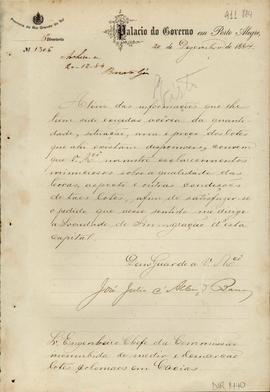 A11.174
Provincia do Rio Grande do Sul
Palacio do Governo em Porto Alegre,
Nº 1306
20 de Dezembro de 1884
Archive-se
20-12-84
Alem das informações que lhe
tem sido exigidas acerca da quanti-
dade, situação, area e preço dos lotes
que ahi existam disponiveis, convem
que V. Mce ministre esclarecimentos
minuciosos sobre a qualidade das
terras, aspecto e outras condições
de taes lotes, afim de satisfazer-se
o pedido que nesse sentido me dirige
a Sociedade de Immigração d'esta
Capital.
Deus Guarde a V. Mce
José Julio d'Albuqe Barros
Sr. Engenheiro Chefe da Commissão
incumbida de medir e demarcar
lotes coloniaes em Caxias